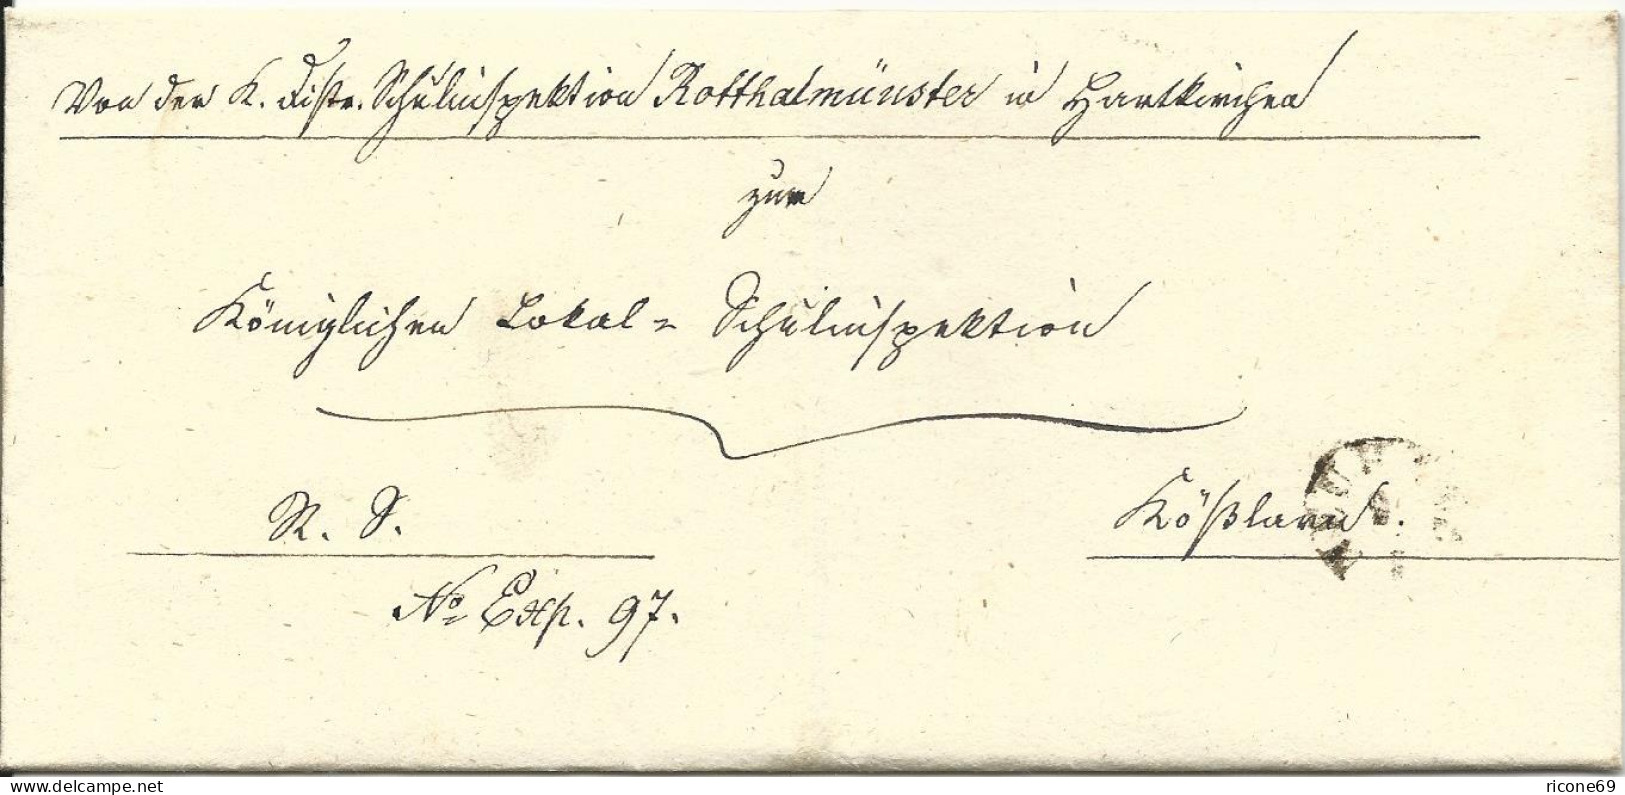 Von der K. Distr. Schulinspektion Rotthalmünster in Hartkirchen
zur
Königlichen Lokal- Schulinspektion
R. S.
Kößlarn.
No Exp. 97.
www.delcampe.net
ricone69